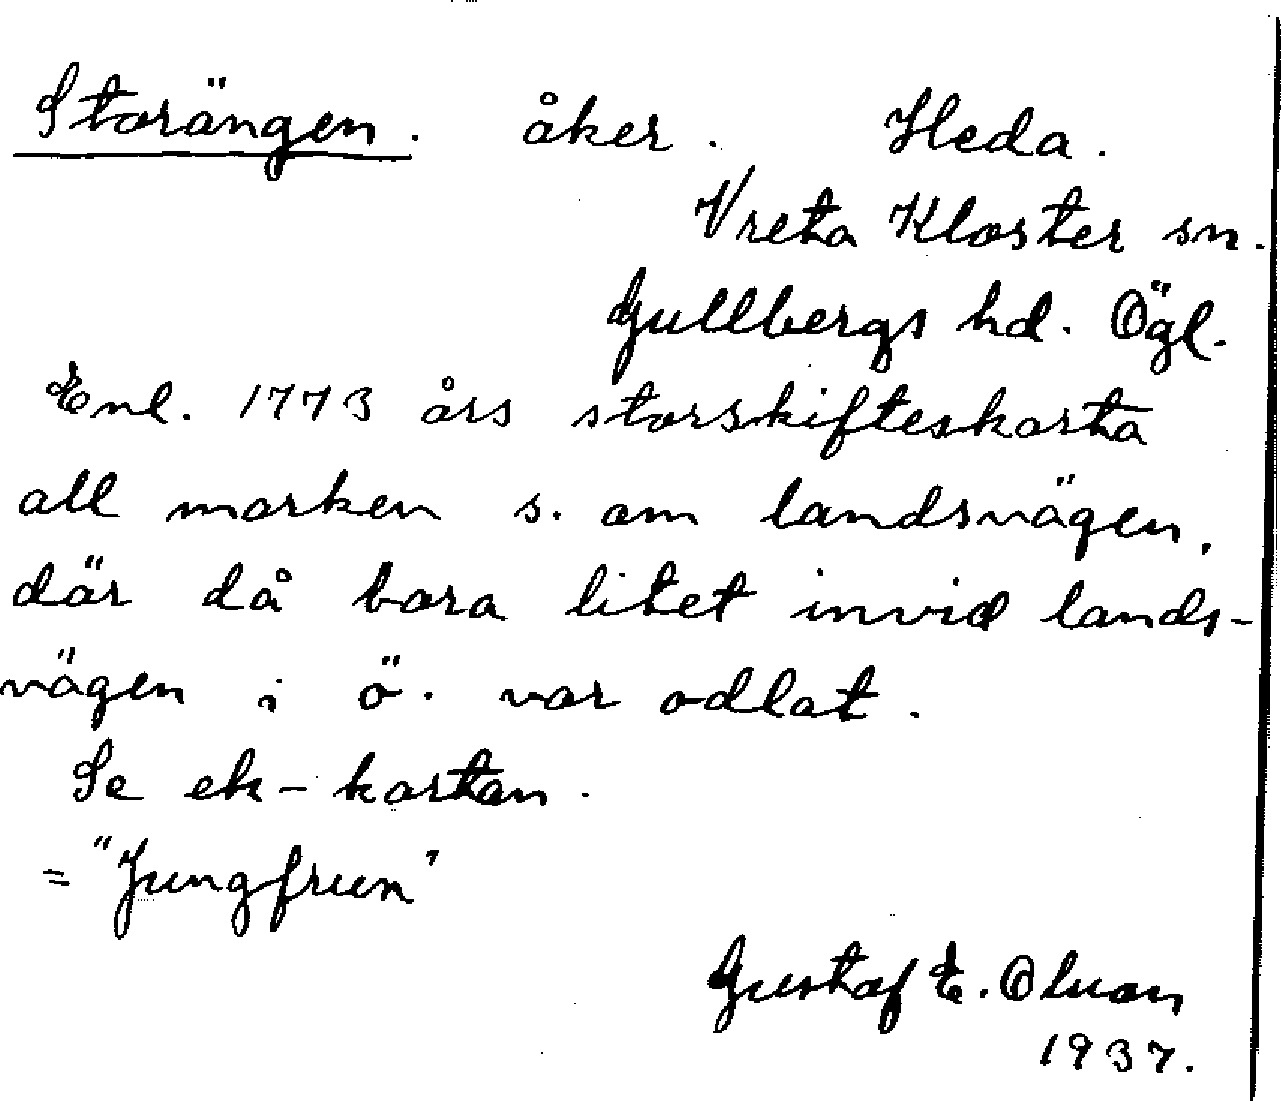 Storängen. åker. Heda.
Vreta Kloster sn.
Gullbergs hd. Ögl.
Enl. 1773 års storskifteskarta
all marken s. om landsvägen,
där då bara litet invid lands-
vägen i ö. var odlat.
Se ek-kartan.
= "Jungfrun"
Gustaf E. Olsson
1937.